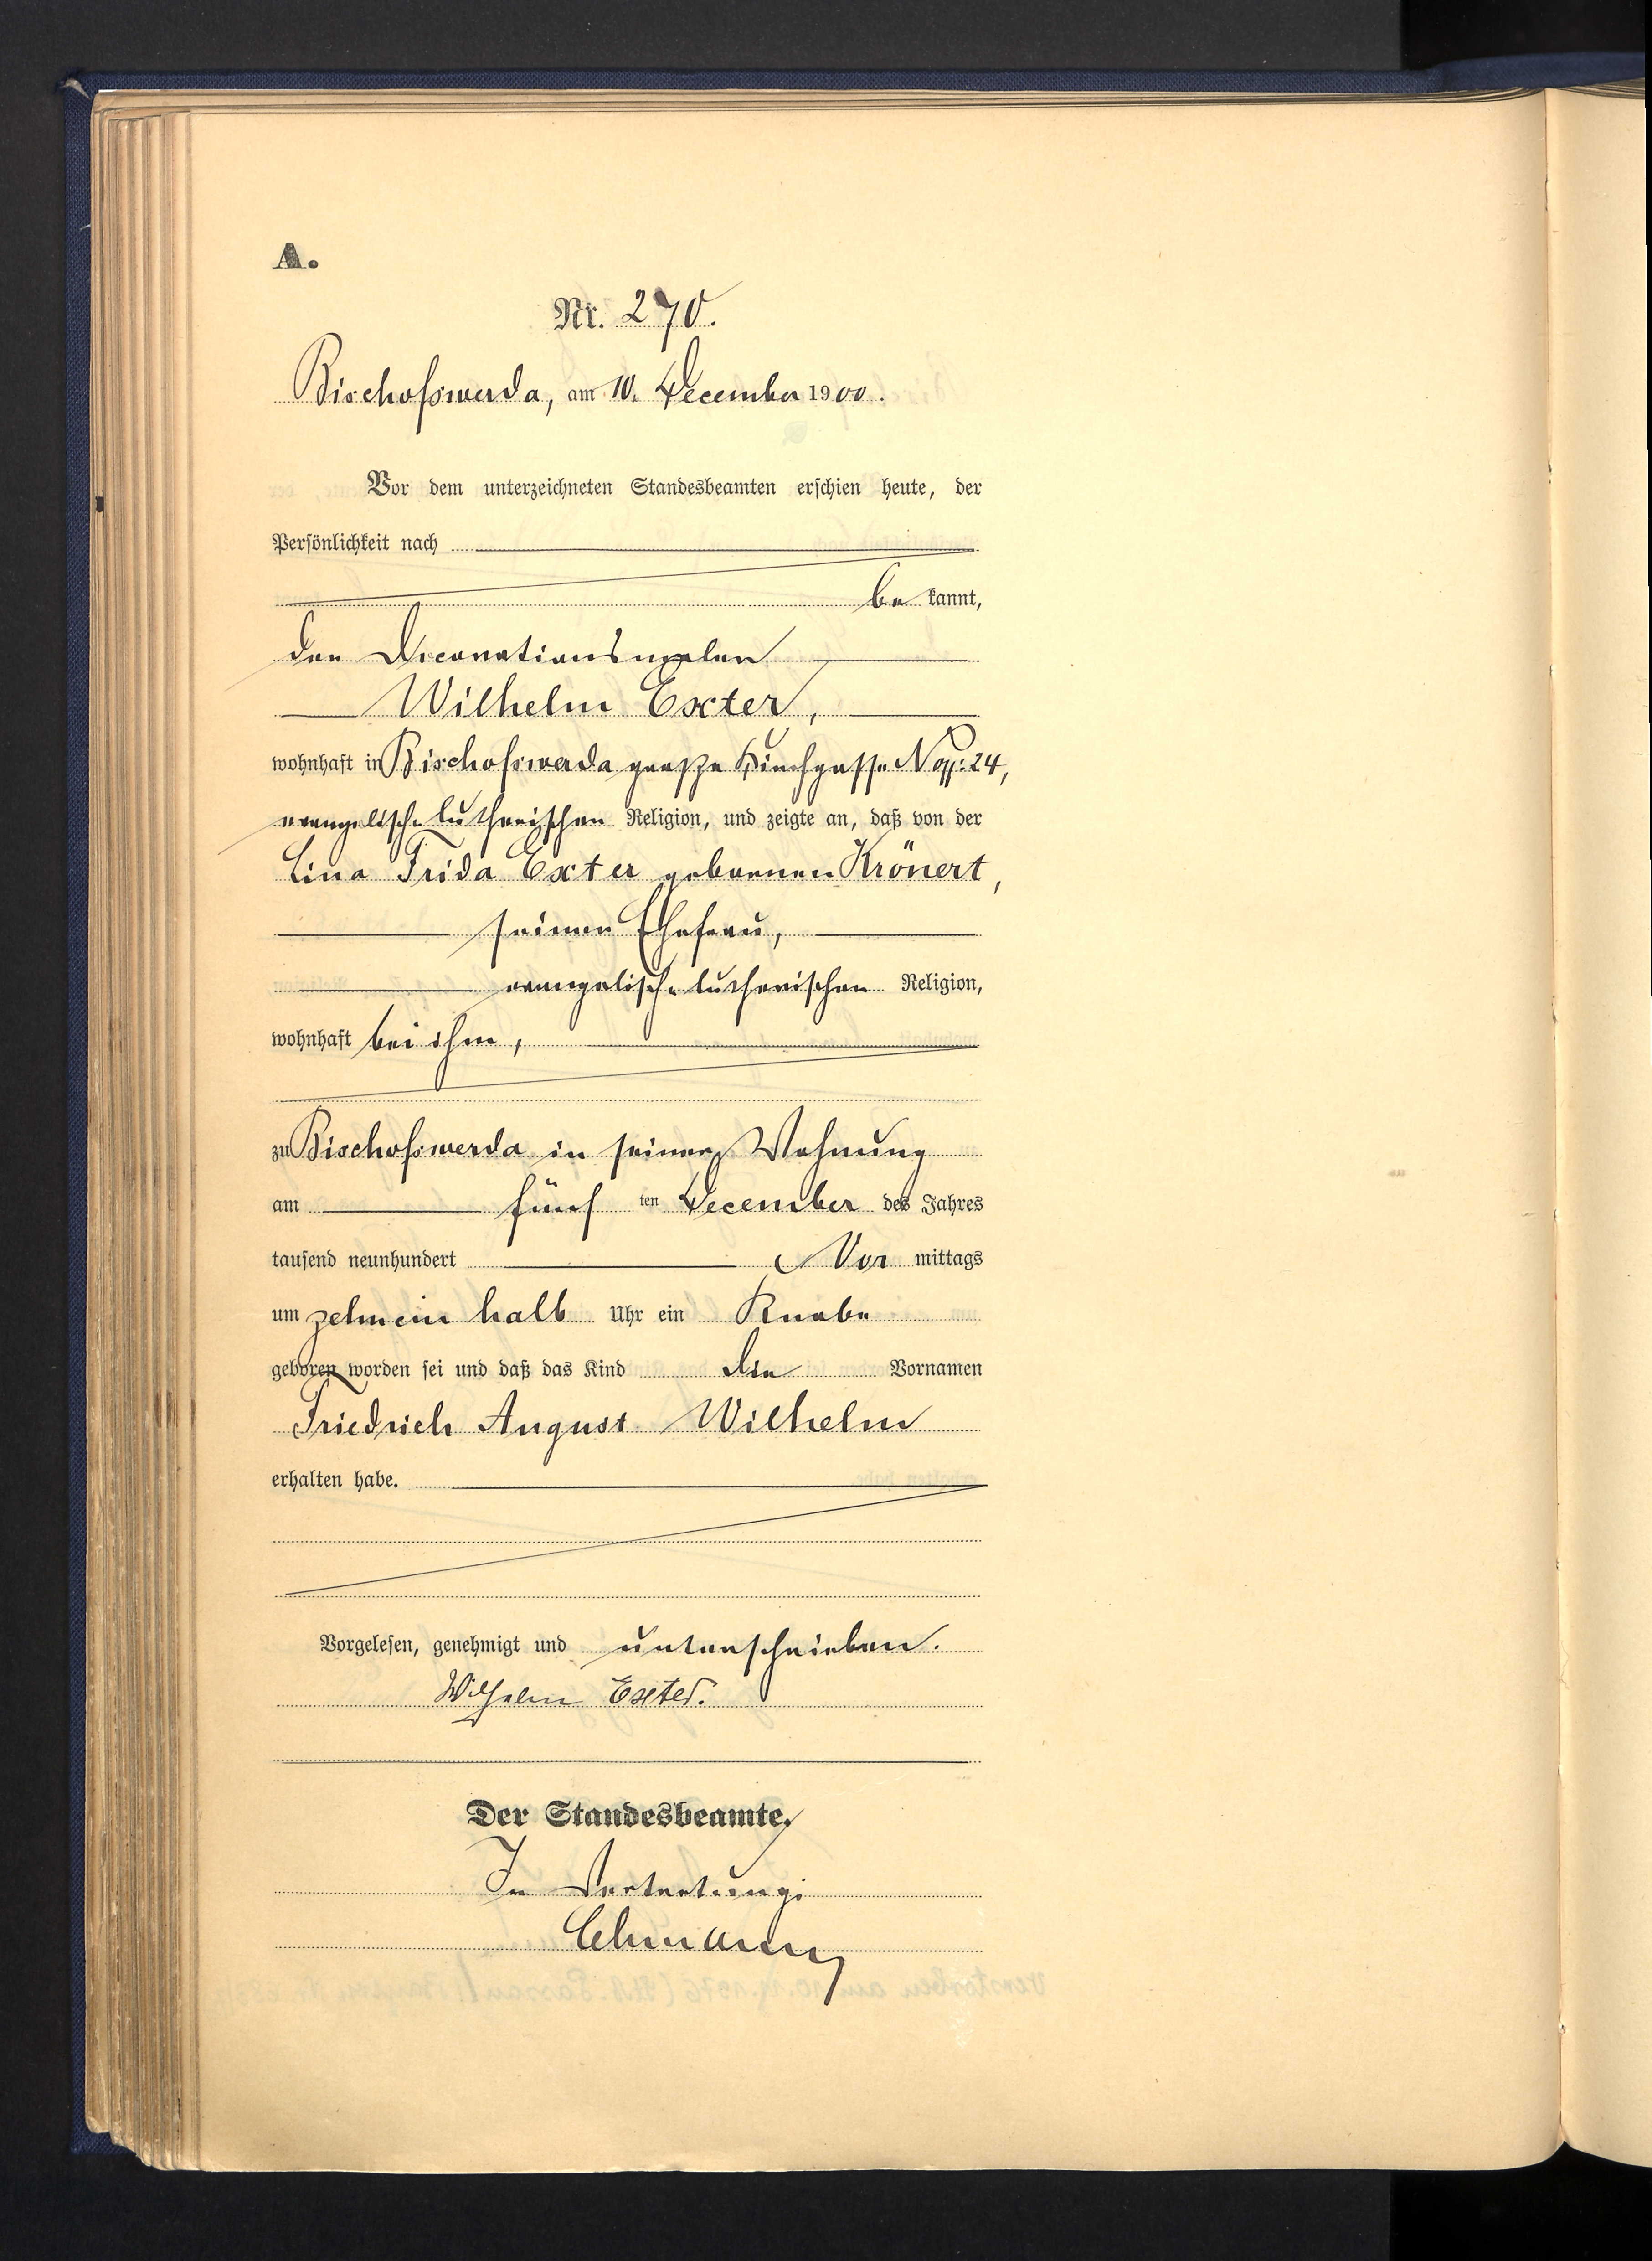 A.
Nr. 270.
Bischofswerda, am 10. December 1900.
Vor dem unterzeichneten Standesbeamten erschien heute, der
Persönlichkeit nach
be kannt,
der Decorationsmaler
Wilhelm Exter,
wohnhaft in Bischofswerda große Kirchgasse No 24,
evangelisch-lutherischer Religion, und zeigte an, daß von der
Lina Frida Exter geborenen Krönert,
seiner Ehefrau,
evangelisch-lutherischer Religion,
wohnhaft bei ihm,
zu Bischofswerda in seiner Wohnung
am fünf ten December des Jahres
tausend neunhundert Vor mittags
um zehnein halb Uhr ein Knabe
geboren worden sei und daß das Kind die Vornamen
Friedrich August Wilhelm
erhalten habe.
Vorgelesen, genehmigt und unterschrieben.
Wilhelm Exter.
Der Standesbeamte.
In Vertretung:
Lehmann